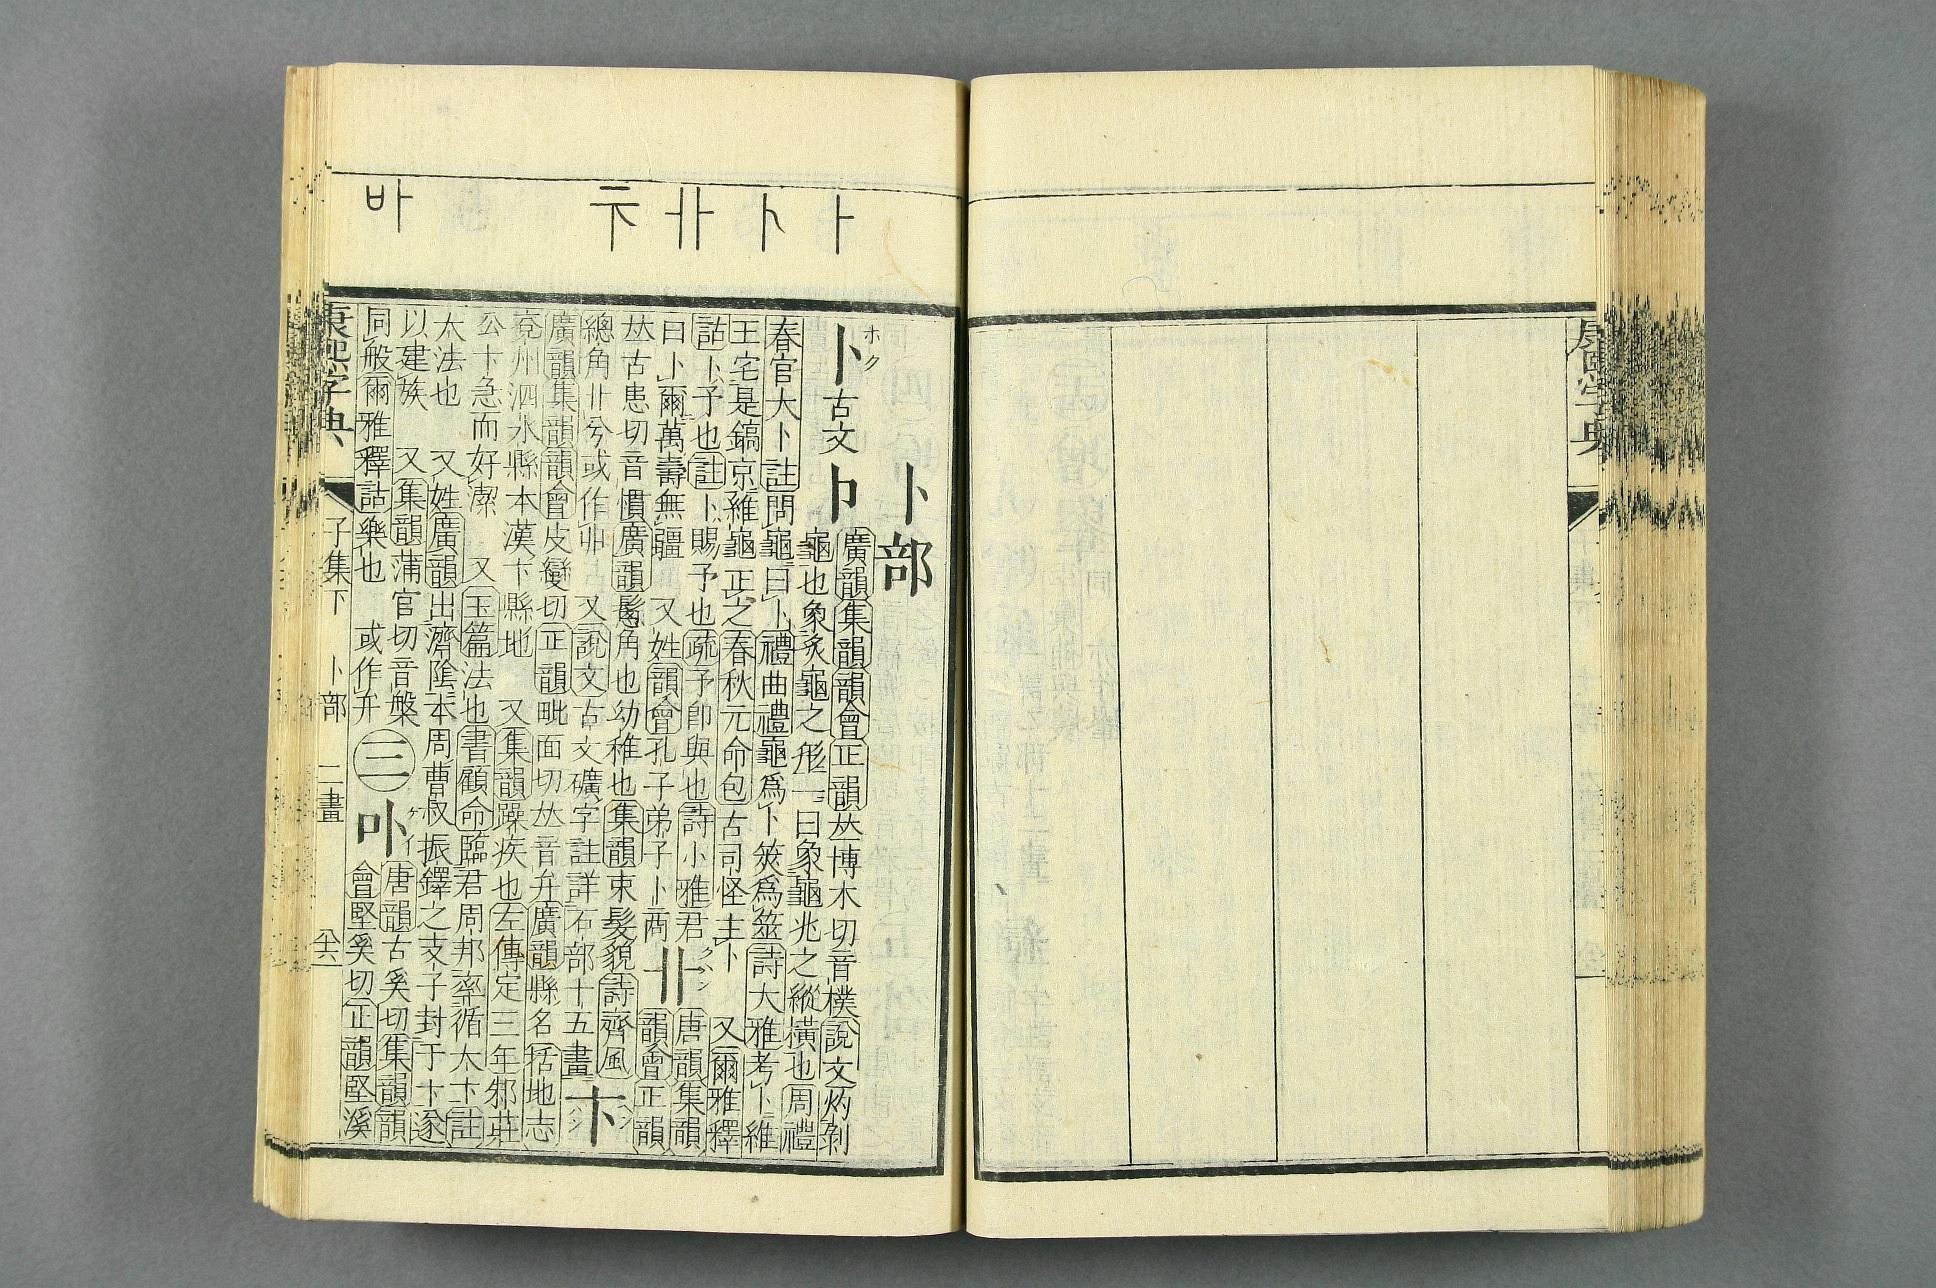 康熙字典
卜部
卜
ホク
古文
廣韻集韻韻會正韻𠀤博木切音樸說文灼剝
龜也象炙龜之形一曰象龜兆之縱橫也周禮
春官大卜註問龜曰卜禮曲禮龜爲卜筴爲筮詩大雅考卜維
王宅是鎬京維龜正之春秋元命包古司怪主卜 又爾雅釋
詁卜予也註卜賜予也疏予卽與也詩小雅君
曰卜爾萬壽無疆 又姓韻會孔子弟子卜商
丱
クワン
唐韻集韻
韻會正韻
𠀤古患切音慣廣韻鬌角也幼稚也集韻束髮貌詩齊風
總角丱兮或作卝 又說文古文礦字註詳石部十五畫
卞
ヘン
廣韻集韻韻會皮變切正韻毗面切𠀤音弁廣韻縣名括地志
兗州泗水縣本漢卞縣地 又集韻躁疾也左傳定三年邾莊
公卞急而好潔 又玉篇法也書顧命臨君周邦率循大卞註
大法也 又姓廣韻出濟隂本周曹叔振鐸之支子封于卞遂
以建族 又集韻蒲官切音槃
同般爾雅釋詁樂也 或作弁
三
卟
ケイ
唐韻古奚切集韻韻
會堅奚切正韻堅溪
康熙字典 子集下 卜部 二畫